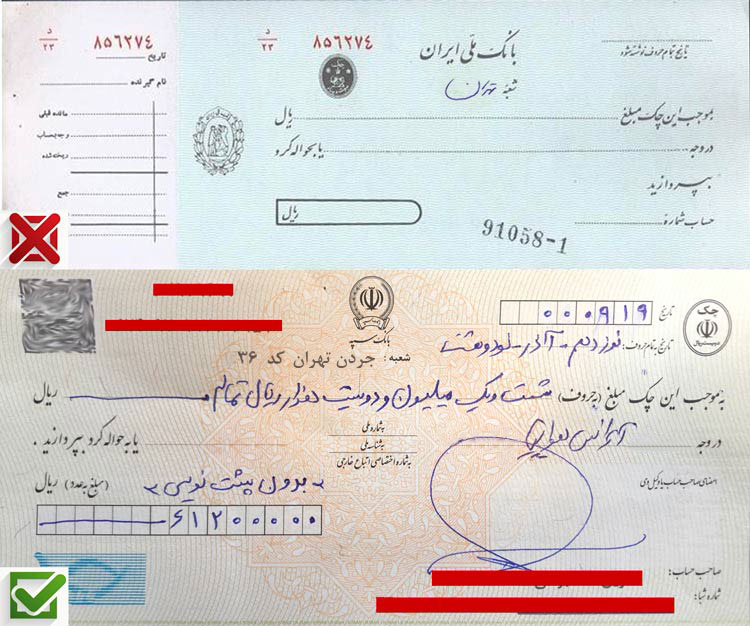 ۸۵۶۲۷٤
د
۲۳
بانک ملی ایران
شعبه تهران
تاریخ تمام حروف نوشته شود
بموجب این چک مبلغ ریال
در وجه یا بحواله کرد
بپردازید
ریال
حساب شماره
91058-1
۸۵۶۲۷٤
د
۲۳
تاریخ
نام گیرنده
مانده قبلی
وجه بحساب
ریخته شده
جمع
چک
تاریخ
۰۰۰۹۱۹
بانک سپه
شعبه : جردن تهران کد ۳۶
تاریخ به تمام حروف: نوزدهم - آذر - نود و هشت
به موجب این چک مبلغ (بحروف) شصت و یک میلیون و دویست هزار ریال تمام ریال
در وجه آژانس هوایی یا به حواله کرد بپردازید .
به شماره ملی
به شناسه ملی
به شماره اختصاصی اتباع خارجی
امضای صاحب حساب یا وکیل وی
بدون پشت نویسی
(مبلغ به عدد) ریال
۶۱۲۰۰۰۰۰
صاحب حساب:
شماره شبا: